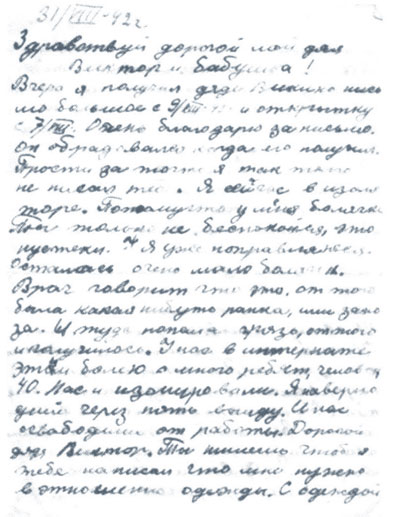 31/VIII-42 г.
Здравствуй дорогой мой дядя
Виктор и бабушка!
Вчера я получил дядя Витино пись
мо большое с 9/VIII и открытку
с 7/VIII. Очень благодарю за письмо.
Он обрадовался когда его получил.
Прости за то что я так
не писал тебе. Я сейчас в изоля
торе. Потому что у меня болячки
Ты только не беспокойся, это
пустяки. Я уже поправляюсь.
Осталось очень мало болячек.
Врач говорит что это от того
была какая нибудь ранка, или зано
за. И туда попала грязь, от того
и получилось. У нас в интернате
этим болело много ребят, человек
40. Нас и изолировали. Я наверно
дней через пять выйду. И нас
освободили от работы. Дорогой
дядя Виктор. Ты пишешь чтобы я
тебе написал что мне нужно
в отношении одежды. С одеждой